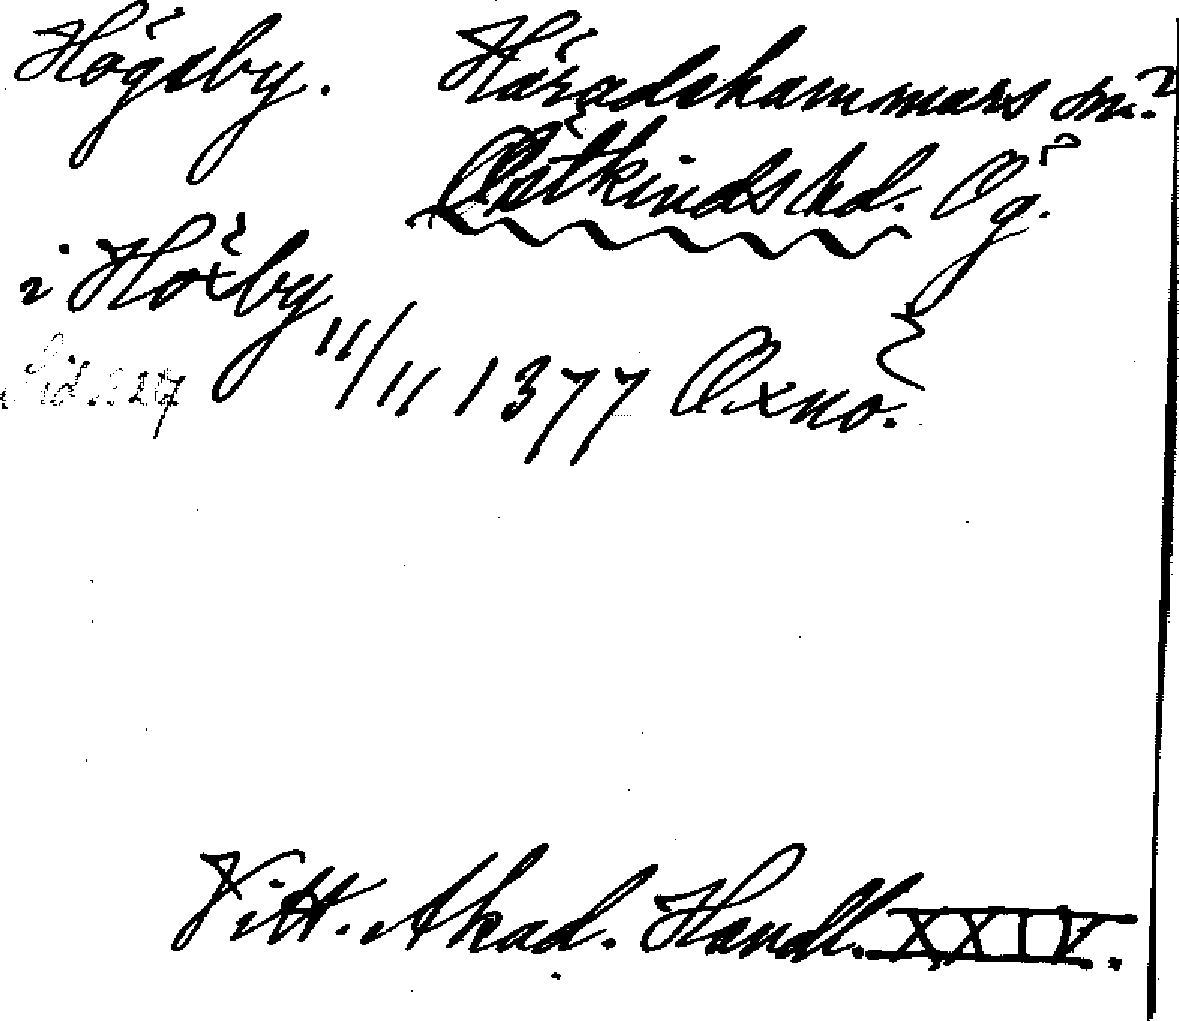 Högsby. Häradshammars sn?
Östkinds hd. Ög.
i Höxby 11/11 1377 Öxnö.
Sid. 227
Vitt. Akad. Handl. XXIV.